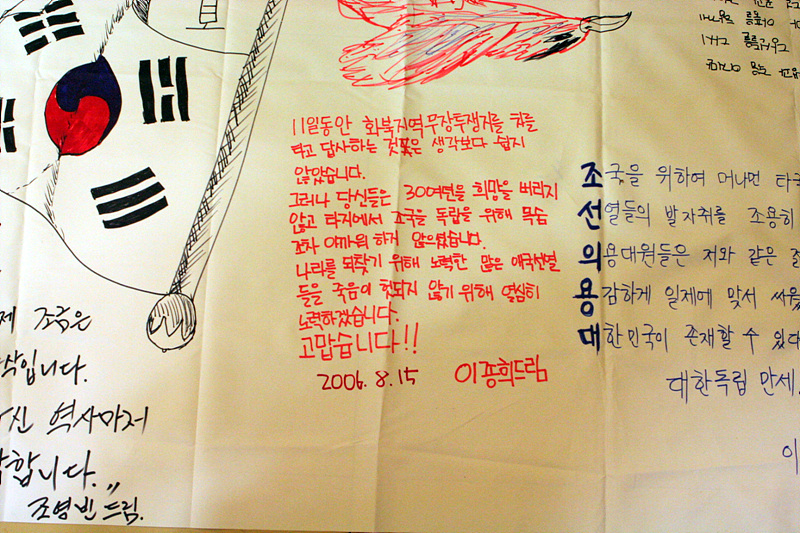 11일동안 화북지역무장투쟁지를 차를
타고 답사하는 것조은 생각보다 쉽지
않았습니다.
그러나 당신들은 30여년을 희망을 버리지
않고 타지에서 조국을 독립을 위해 목숨
조차 아까워 하지 않으셨습니다.
나라를 되찾기 위해 노력한 많은 애국선열
들을 죽음이 헛되지 않기 위해 열심히
노력하겠습니다.
고맙습니다!!
2006. 8. 15 이종희드림
조국을 위하여 머나먼 타국
선열들의 발자취를 조용히
의용대원들은 저와 같은
용감하게 일제에 맞서 싸웠
대한민국이 존재할 수 있
대한독립 만세.
이
조금은
입니다.
역사마저
합니다.
조영빈드림.